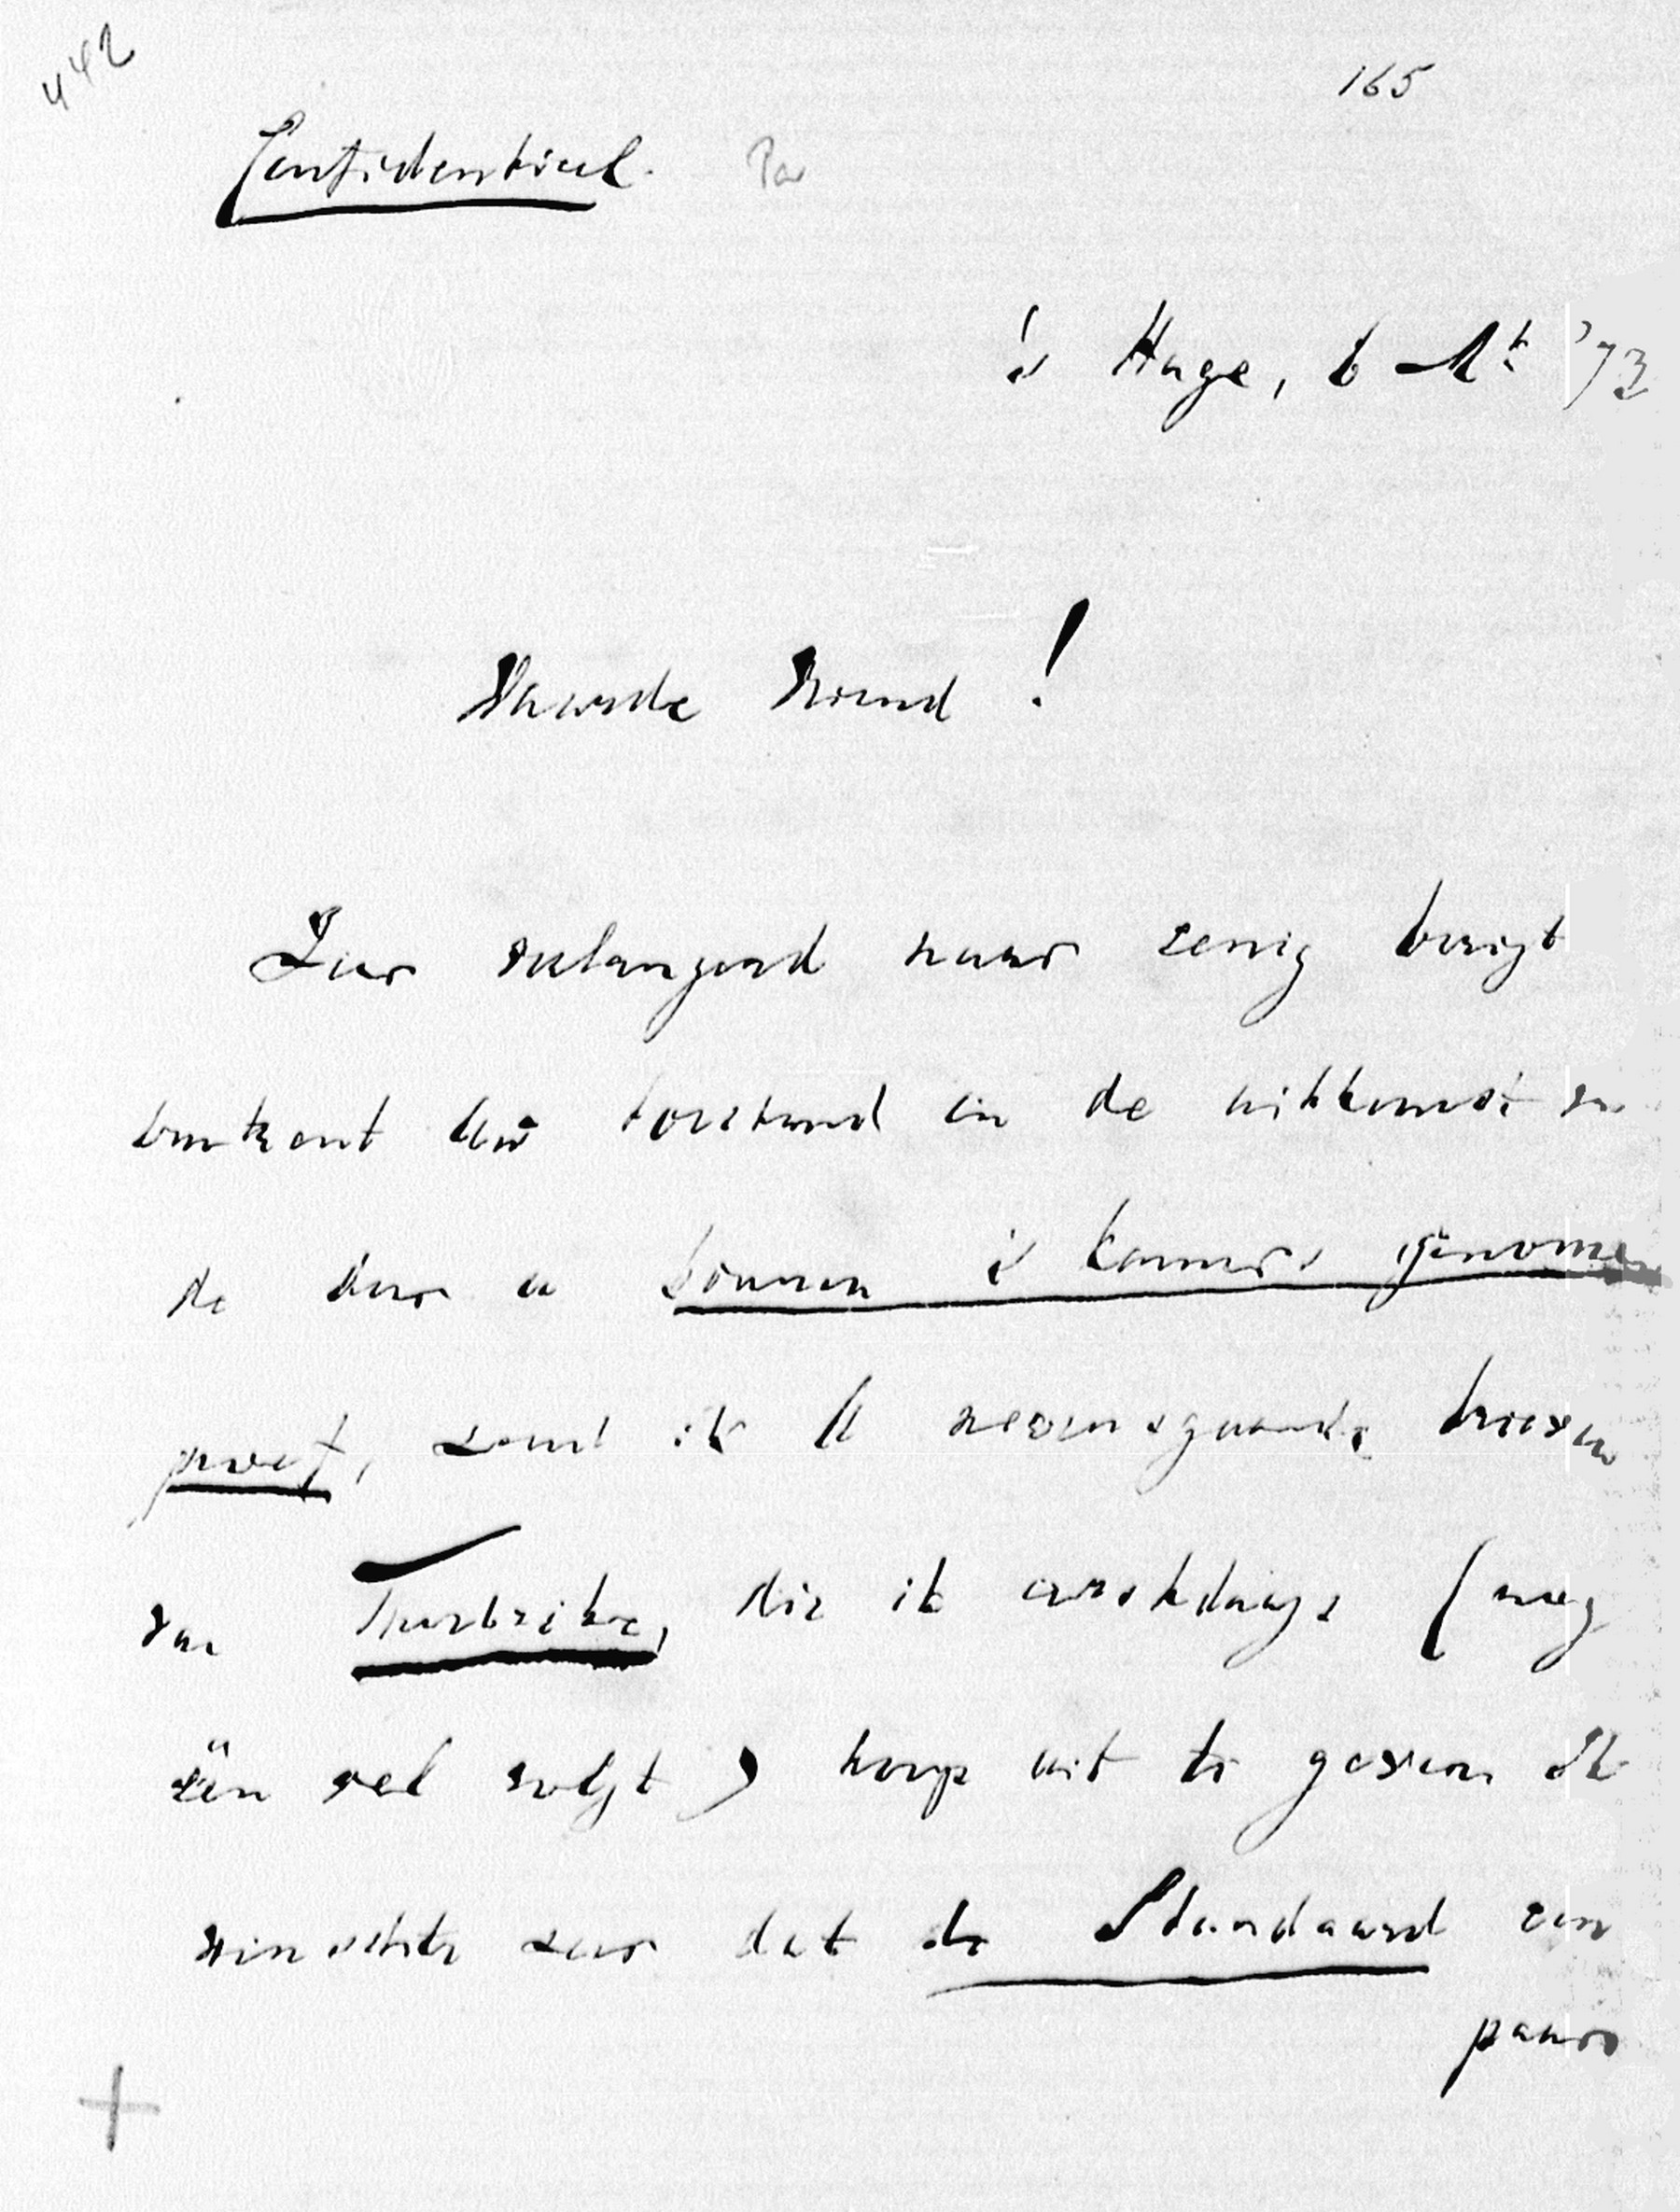 442
165
Confidentieel. Par
's Hage, 6 Mt '73
Waarde Vriend!
Zeer verlangend naar eenig berigt
omtrent Uw toestand en de uitkomst van
de door u binnen 's kamers genomen
proef, zend ik U nevensgaande brieven
van Thorbecke, die ik eerstdaags (nog
één vel volgt) hoop uit te geven. Ik
wenschte zeer dat de Standaard een
paar